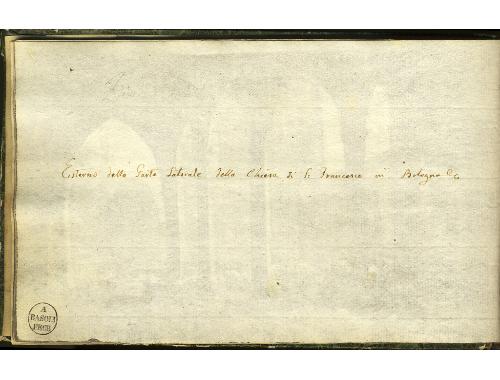 Esterno della Parte Laterale della Chiesa di S. Francesco in Bologna &c
A
BASOLI
FECE